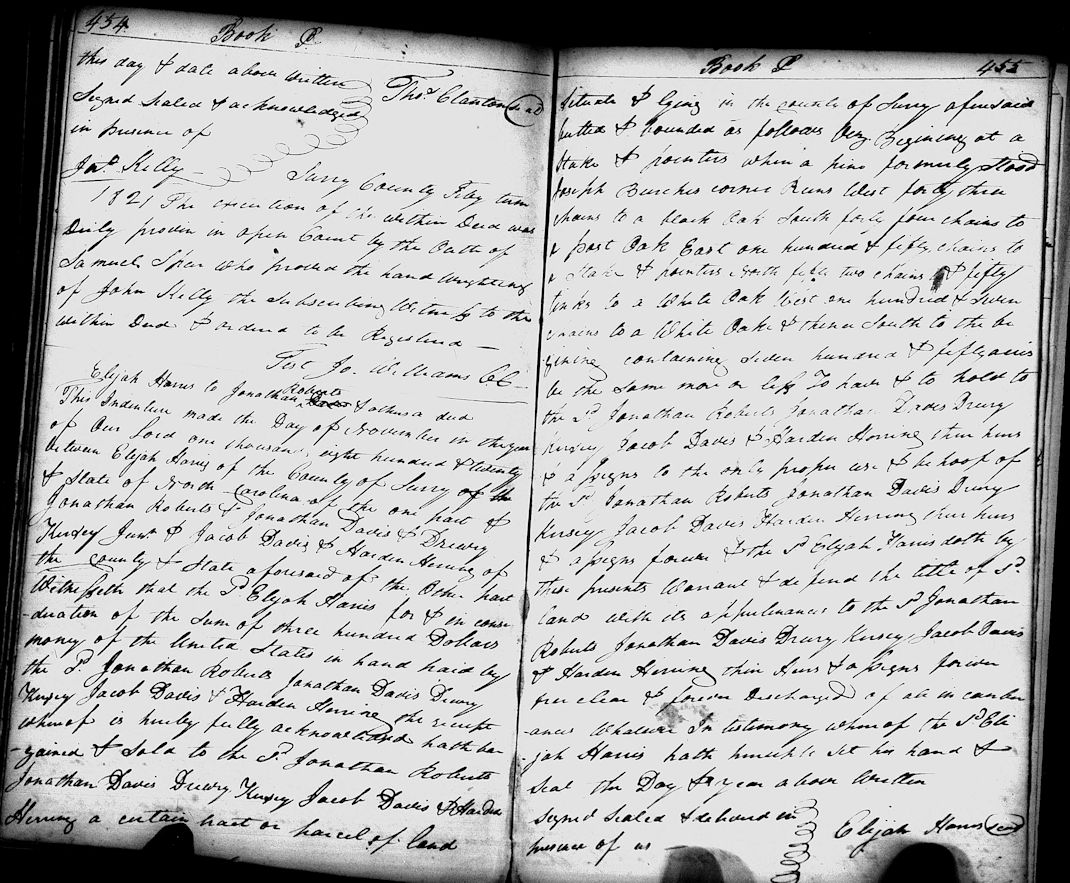 454 Book P
this day & date above written
Signed Sealed & acknowledged Thos. Clanton Seal
in presence of
Jno. Kelly Surry County May term
1821 The execution of the within Deed was
Duly proven in open Court by the Oath of
Samuel Speer who proved the hand wrighting
of John Kelly the subscribing Witness to the
within Deed & ordered to be Registered
Test Jo. Williams CC
Elijah Harris to Jonathan Roberts & others a deed
This Indenture made the Day of November in the year
of Our Lord one thousand eight hundred & twenty
between Elijah Harris of the County of Surry
& State of North Carolina of the one part &
Jonathan Roberts & Jonathan Davis & Drewry
Kersey Junr & Jacob Davis & Harden Herring of
the county & State aforesaid of the Other part
Witnesseth that the Sd. Elijah Harris for & in consi
-deration of the Sum of three hundred Dollars
money of the United States in hand paid by
the Sd. Jonathan Roberts Jonathan Davis Drury
Kersey Jacob Davis & Harden Herring the receipt
whereof is hereby fully acknowledged hath bar
-gained & Sold to the Sd. Jonathan Roberts
Jonathan Davis Drewry Kersey Jacob Davis & Harden
Herring a certain tract or parcel of land
Book P 455
situate & lying in the county of Surry aforesaid
butted & bounded as follows Viz Begining at a
Stake & pointers when a pine formerly Stood
Joseph Burches corner Runs West forty three
chains to a black Oak South forty four chains to
a post Oak East one hundred & fifty chains to
a Stake & pointers North fifty two chains & fifty
links to a White Oak West one hundred & seven
chains to a White Oake & thence South to the be
-gining containing seven hundred & fifty acres
be the same more or less To have & to hold to
the Sd. Jonathan Roberts Jonathan Davis Drury
Kersey Jacob Davis & Harden Herring their heirs
& assigns to the only proper use & behoof of
the Sd. Jonathan Roberts Jonathan Davis Drury
Kersey Jacob Davis Harden Herring their heirs
& assigns forever & the Sd Elijah Harris doth by
these presents Warrant & defend the title of Sd.
land with its appurtenances to the Sd Jonathan
Roberts Jonathan Davis Drury Kersey Jacob Davis
& Harden Herring their Heirs & assigns forever
free clear & forever Discharged of all incumber
-ances Whatever In testimony whereof the Sd Eli
-jah Harris hath hereunto Set his hand &
Seal the Day & year above Written
Signed Sealed & delivered in
presence of us Elijah Harris Seal